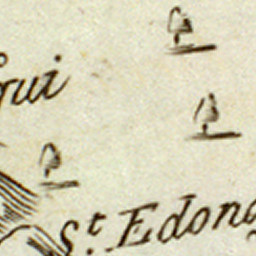 gui
St. Edong